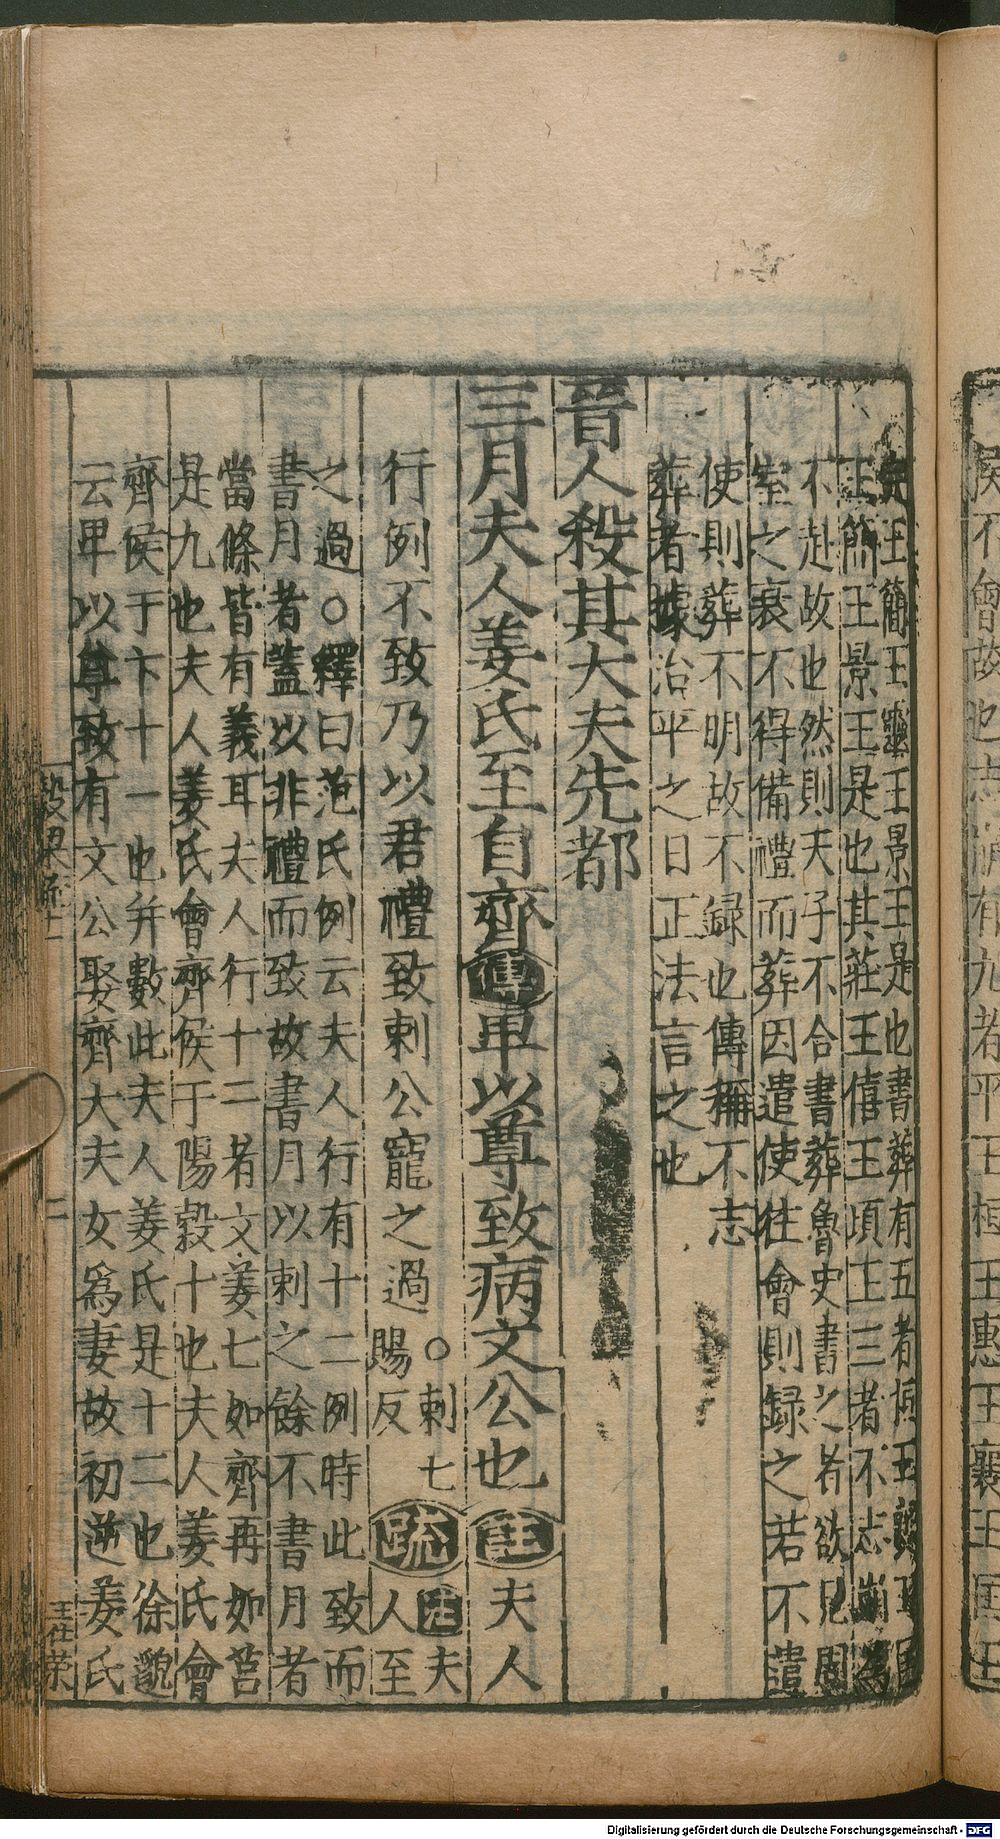 侯不會故也志崩有九者平王桓王惠王襄王匡王
定王簡王靈王景王是也書葬有五者桓王襄王匡
王簡王景王是也其莊王僖王頃王三者不志崩為
不赴故也然則天子不合書葬魯史書之者欲見周
室之衰不得備禮而葬因遣使往會則録之若不遣
使則葬不明故不録也傳稱不志
葬者據治平之日正法言之也
晉人殺其大夫先都
三月夫人姜氏至自齊傳卑以尊致病文公也註夫人
行例不致乃以君禮致剌公寵之過○剌七賜反疏注夫人至
之過○釋曰范氏例云夫人行有十二例時此致而
書月者蓋以非禮而致故書月以剌之餘不書月者
當條皆有義耳夫人行十二者文姜七如齊再如莒
是九也夫人姜氏會齊侯于陽穀十也夫人姜氏會
齊侯于卞十一也并數此夫人姜氏是十二也徐邈
云卑以尊致有文公娶齊大夫女爲妻故初逆姜氏
穀梁疏十一
二
王仕荣
Digitalisierung gefördert durch die Deutsche Forschungsgemeinschaft - DFG